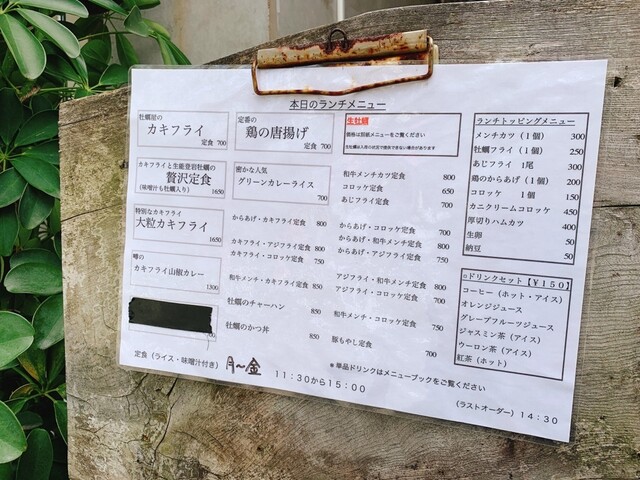 本日のランチメニュー
牡蠣屋の
カキフライ
定食 700
定番の
鶏の唐揚げ
定食 700
生牡蠣
価格は別紙メニューをご覧ください
生牡蠣は入荷の状況で提供できない場合があります
カキフライと生能登岩牡蠣の
贅沢定食
(味噌汁も牡蠣入り) 1650
密かな人気
グリーンカレーライス
700
特別なカキフライ
大粒カキフライ
1650
噂の
カキフライ山椒カレー
1300
からあげ・カキフライ定食 800
カキフライ・アジフライ定食 800
カキフライ・コロッケ定食 750
和牛メンチ・カキフライ定食 850
牡蠣のチャーハン 850
牡蠣のかつ丼 850
和牛メンチカツ定食 800
コロッケ定食 650
あじフライ定食 700
からあげ・コロッケ定食 700
からあげ・和牛メンチ定食 800
からあげ・アジフライ定食 750
アジフライ・和牛メンチ定食 800
アジフライ・コロッケ定食 700
和牛メンチ・コロッケ定食 750
豚もやし定食 700
ランチトッピングメニュー
メンチカツ (1個) 300
牡蠣フライ (1個) 250
あじフライ 1尾 300
鶏のからあげ (1個) 200
コロッケ 1個 150
カニクリームコロッケ 450
厚切りハムカツ 400
生卵 50
納豆 50
○ドリンクセット【¥150】
コーヒー (ホット・アイス)
オレンジジュース
グレープフルーツジュース
ジャスミン茶 (アイス)
ウーロン茶 (アイス)
紅茶 (ホット)
定食 (ライス・味噌汁付き) 月〜金 11:30から15:00
*単品ドリンクはメニューブックをご覧ください
(ラストオーダー) 14:30